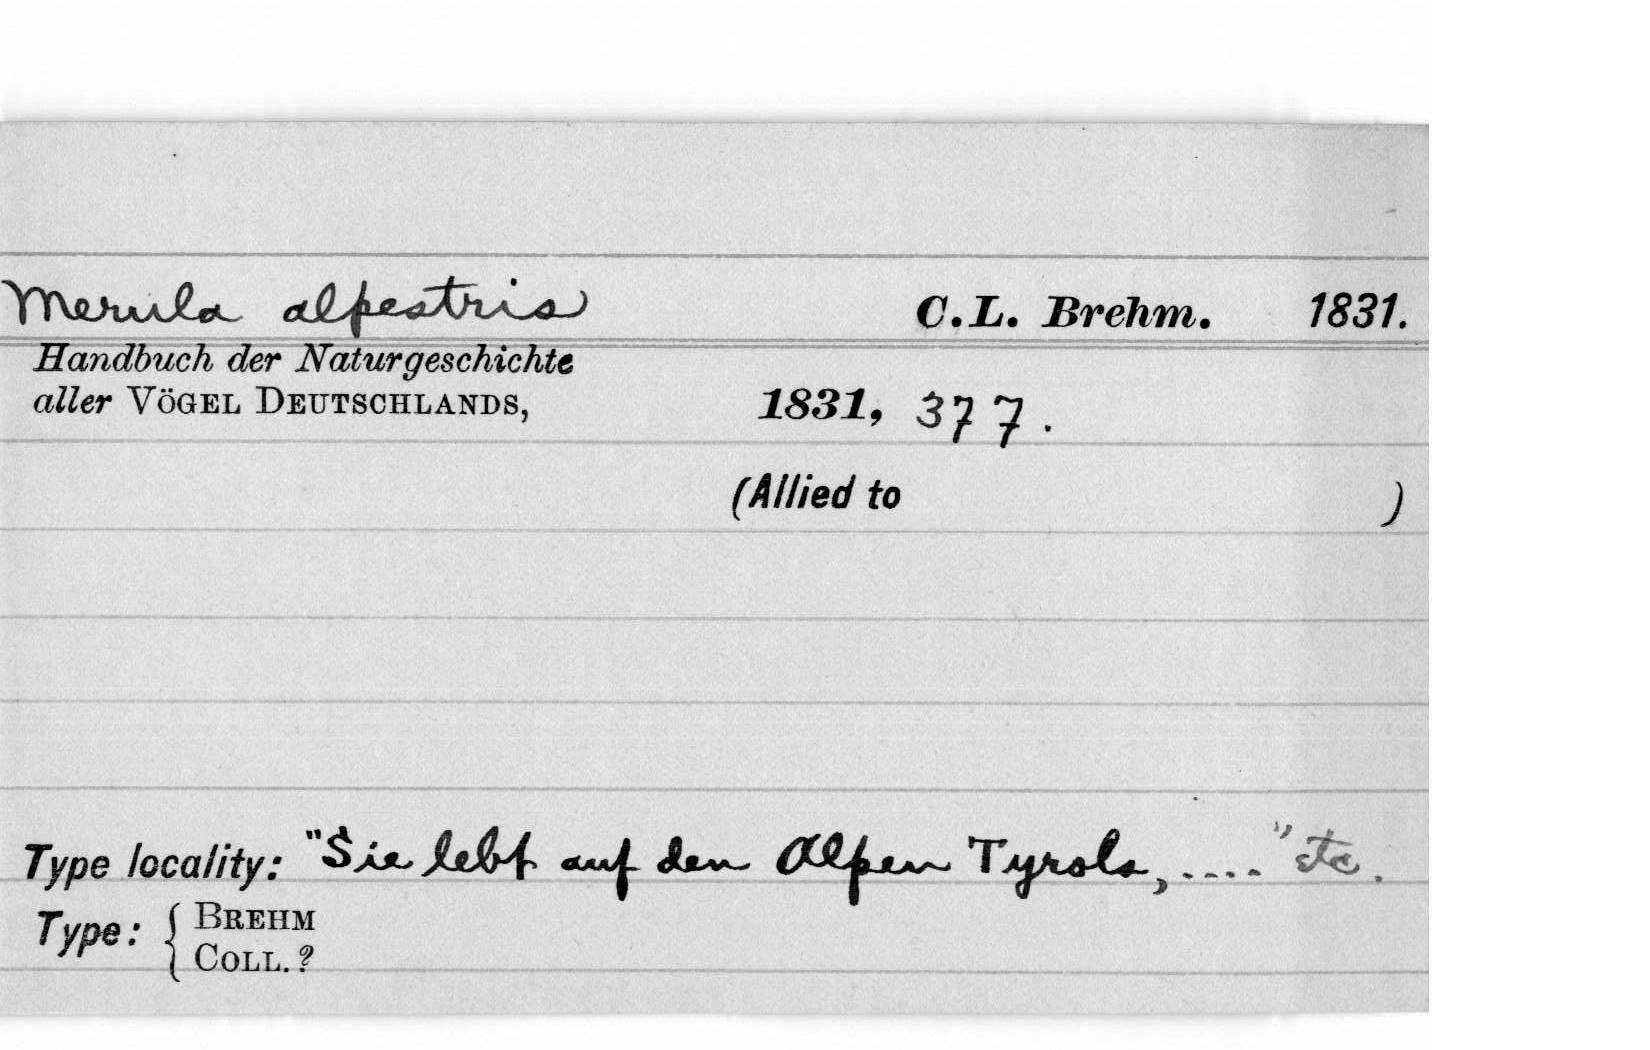 Merula alpestris C.L. Brehm. 1831.
Handbuch der Naturgeschichte
aller VÖGEL DEUTSCHLANDS, 1831, 377.
(Allied to )
Type locality: "Sie lebt auf den Alpen Tyrols, ....." etc.
Type: { BREHM
COLL. ?